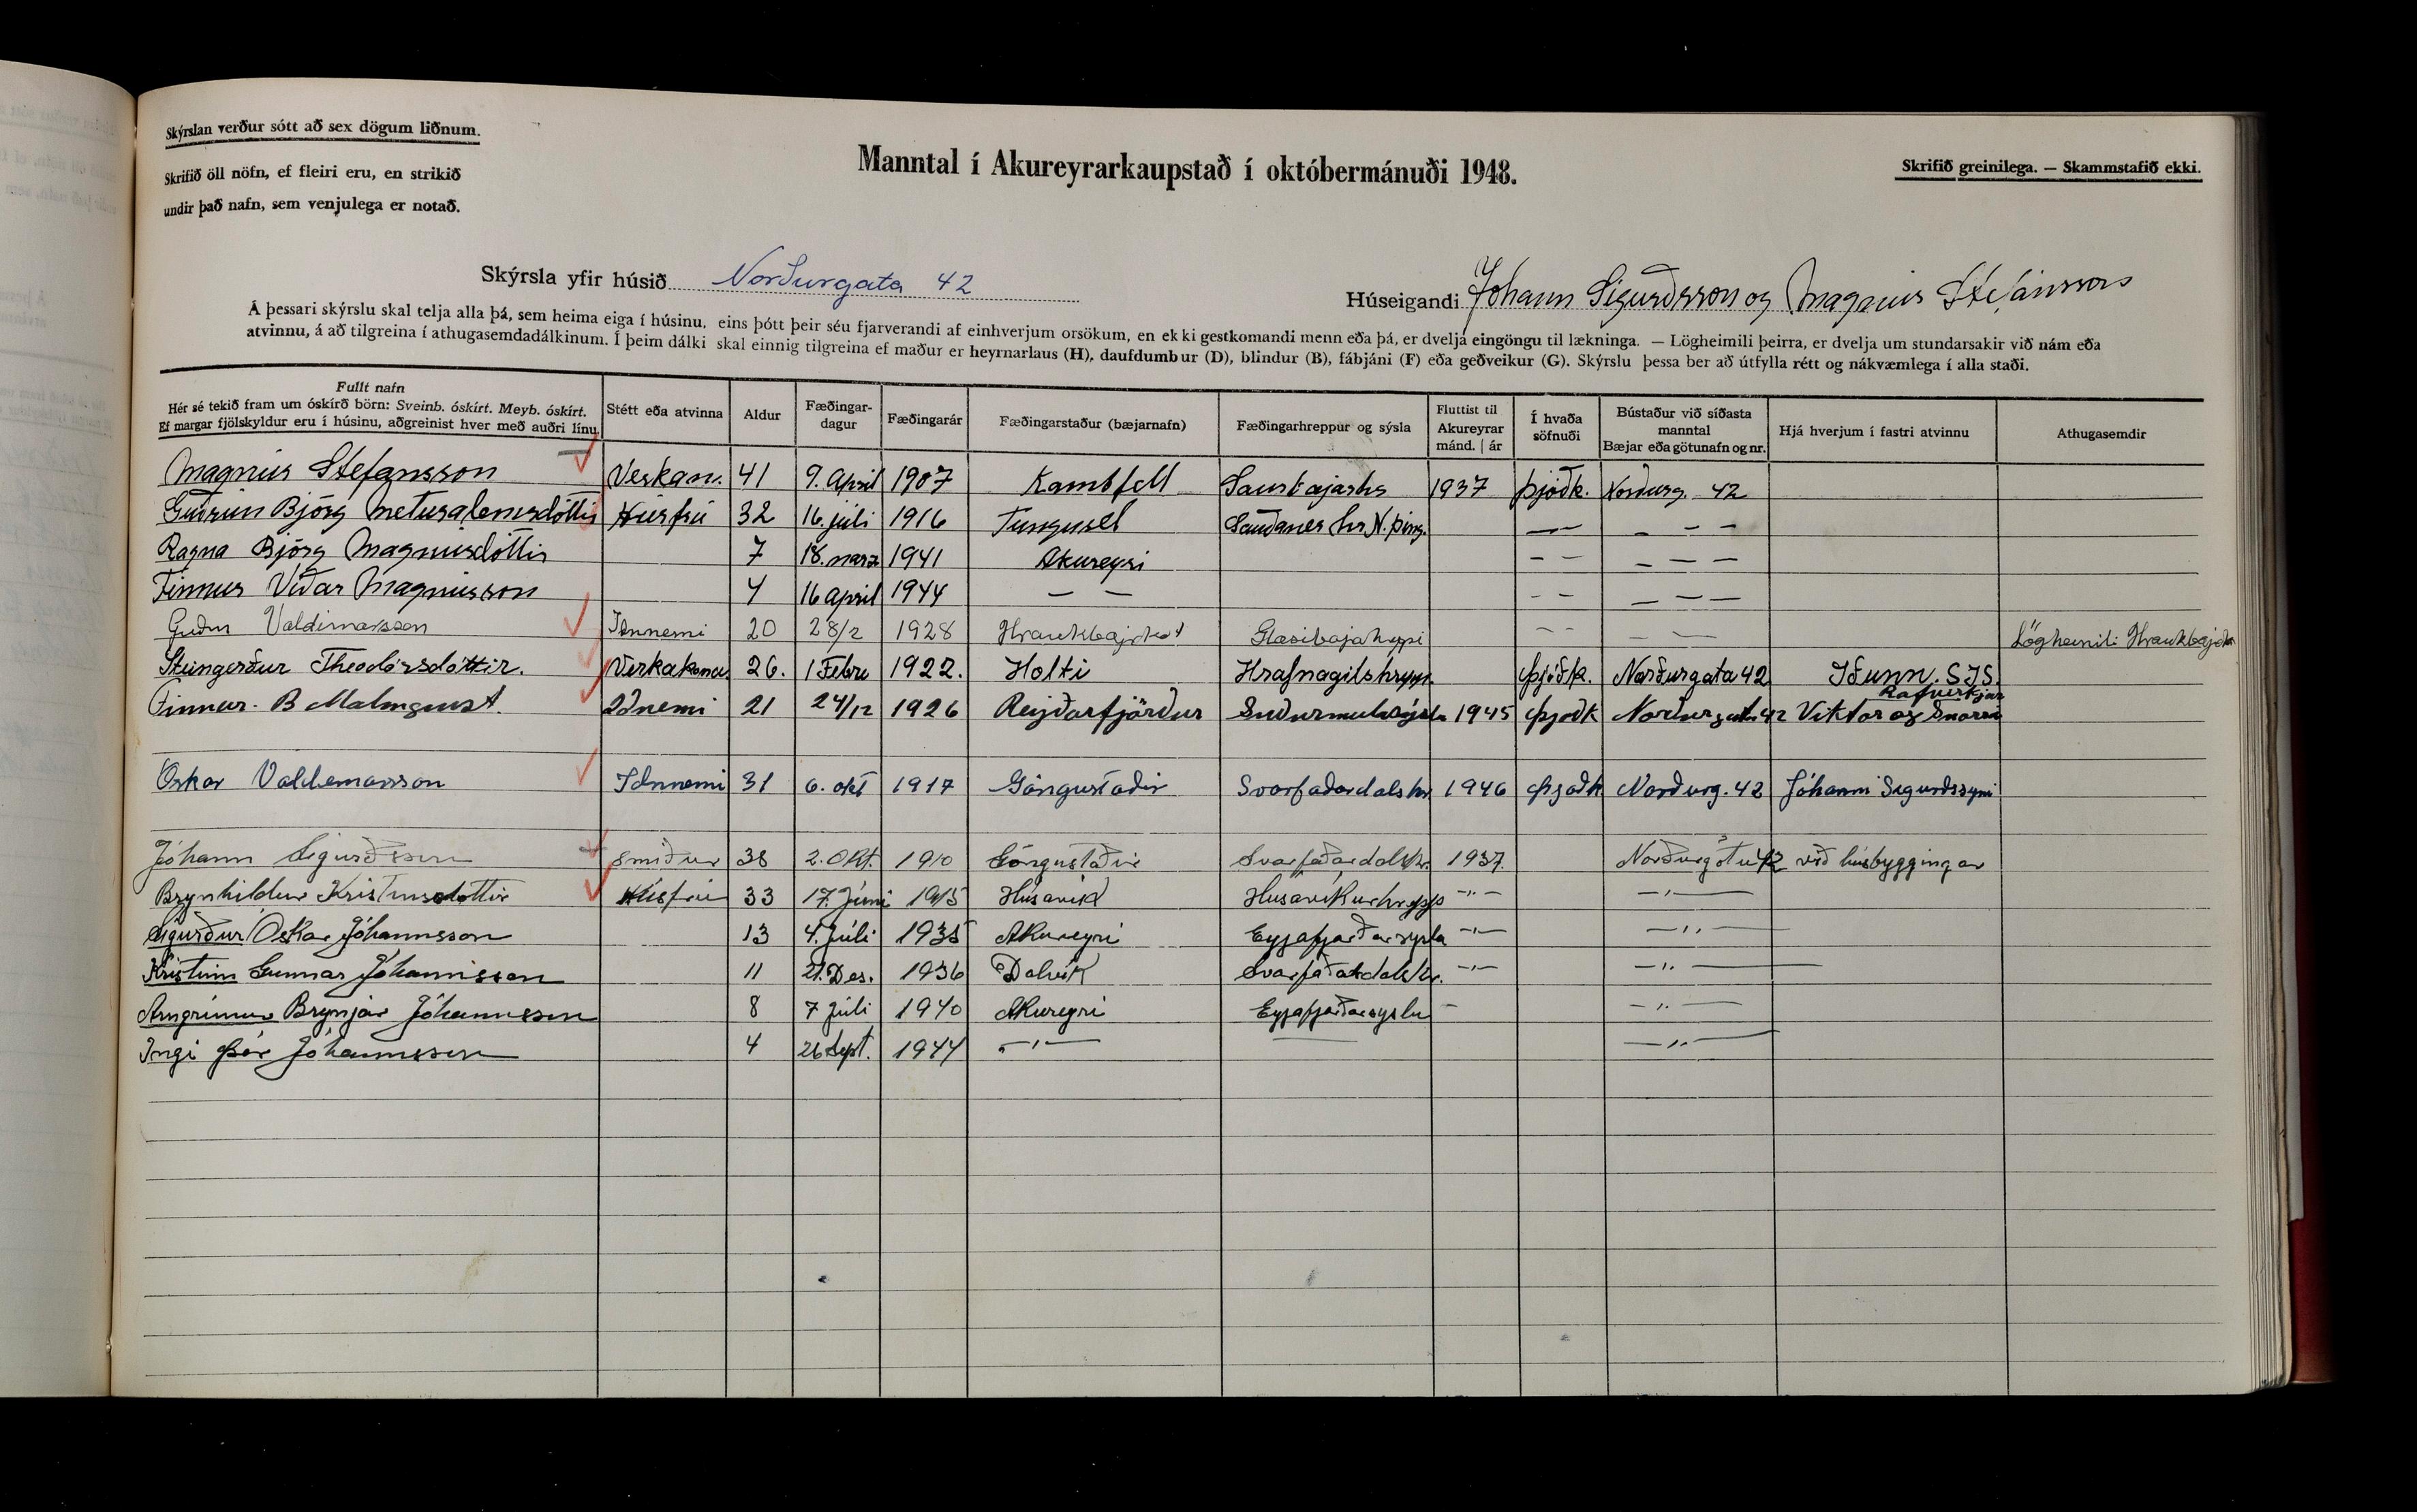 Skýrslan verður sótt að sex dögum liðnum.
Skrifið öll nöfn, ef fleiri eru, en strikið
undir það nafn, sem venjulega er notað.
Manntal í Akureyrarkaupstað í októbermánuði 1948.
Skrifið greinilega. — Skammstafið ekki.
Skýrsla yfir húsið Norðurgata 42
Húseigandi Jóhann Sigurðsson og Magnús Stefánsson
Á þessari skýrslu skal telja alla þá, sem heima eiga í húsinu, eins þótt þeir séu fjarverandi af einhverjum orsökum, en ekki gestkomandi menn eða þá, er dvelja eingöngu til lækninga. — Lögheimili þeirra, er dvelja um stundarsakir við nám eða
atvinnu, á að tilgreina í athugasemdadálkinum. Í þeim dálki skal einnig tilgreina ef maður er heyrnarlaus (H), daufdumbur (D), blindur (B), fábjáni (F) eða geðveikur (G). Skýrslu þessa ber að útfylla rétt og nákvæmlega í alla staði.
Fullt nafn
Hér sé tekið fram um óskírð börn: Sveinb. óskírt. Meyb. óskírt.
Ef margar fjölskyldur eru í húsinu, aðgreinist hver með auðri línu
Stétt eða atvinna
Aldur
Fæðingar-
dagur
Fæðingarár
Fæðingarstaður (bæjarnafn)
Fæðingarhreppur og sýsla
Fluttist til
Akureyrar
mánd. | ár
Í hvaða
söfnuði
Bústaður við síðasta
manntal
Bæjar eða götunafn og nr.
Hjá hverjum í fastri atvinnu
Athugasemdir
Magnús Stefansson Verkam. 41 9. April 1907 Kambfell Saurbæjarhr 1937 Þjóðk. Norðurg. 42
Guðrún Björg Metúsalemsdóttir Húsfrú 32 16. júli 1916 Tungusel Sauðanes hr N. Þing. — — –
Ragna Björg Magnusdóttir 7 18. mars 1941 Akureyri – – – – –
Finnur Viðar Magnússon 4 16 april 1944 – – – – – – –
Guðm Valdimarsson Iðnnemi 20 28/2 1928 Hraukbæjarkot Glæsibæjahreppi – – – – Lögheimili
Steingerður Theodórsdóttir. Verkakona 26. 1 Febru 1922. Holti Hrafnagilshrepp. Þjóðk. Norðurgata 42 Iðunn. S.Í.S.
Finnur. B Malmquist. Iðnemi 21 24/12 1926 Reyðarfjörður Suðurmulasýsla 1945 Þjoðk Norðurgata 42 Rafvirkjar Viktor og Snorri
Óskar Valdemarsson Iðnnemi 31 6. okt 1917 Göngustaðir Svarfaðardalshr 1946 Þjoðk Norðurg. 42 Jóhanni Sigurðssyni
Jóhann Sigurðsson Smiður 38 2. Okt. 1910 Göngustaðir Svarfaðardalshr. 1937. Norðurgötu 42 við húsbyggingar
Brynhildur Kristinsdóttir Húsfrú 33 17. Júni 1915 Húsavík Húsavíkurhrepp –"– –"–
Sigurður Óskar Jóhannsson 13 4. Júli 1935 Akureyri Eyjafjarðarsysla –"– –"–
Kristinn Gunnar Jóhannsson 11 21. Des. 1936 Dalvík Svarfaðardalshr. –"– –"–
Arngrímur Brynjar Jóhannsson 8 7 Júli 1940 Akureyri Eyjafjarðarsyslu – –"–
Ingi Þór Jóhannsson 4 26 Sept. 1944 –"– –"–